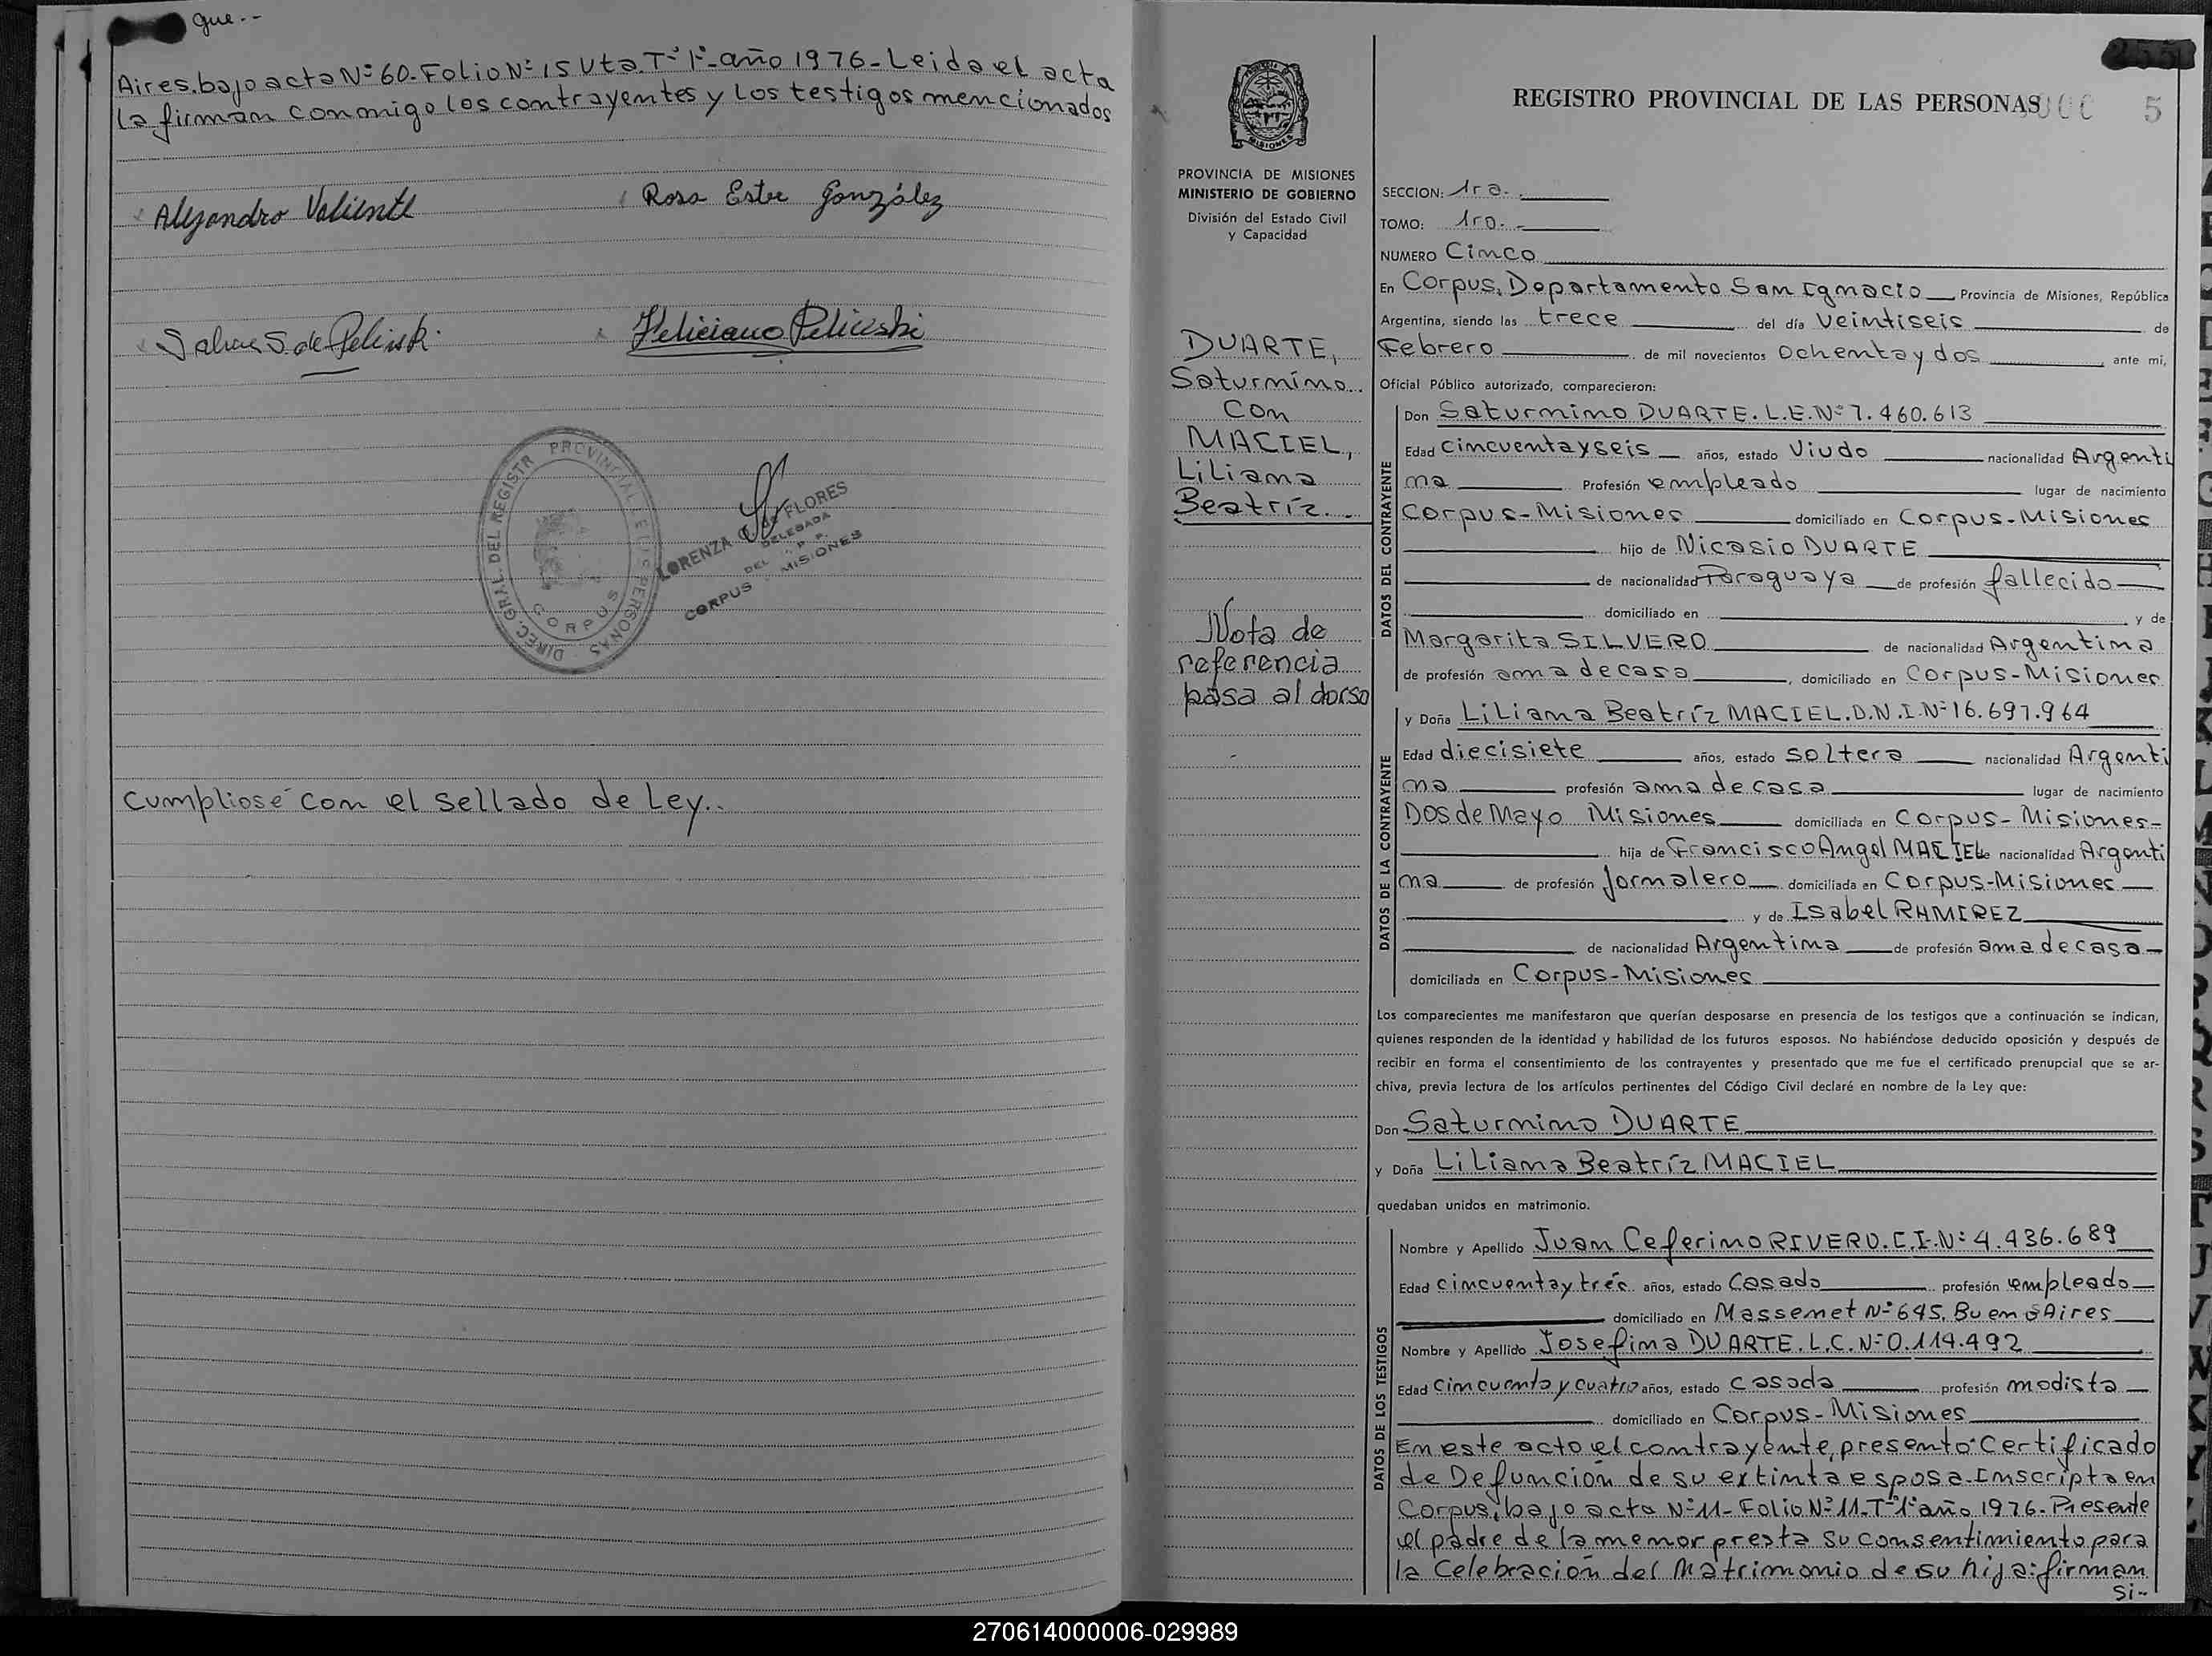 que.--
Aires. bajo acta Nº 60. Folio Nº 15 Vta. Tº 1º- año 1976- Leida el acta
la firman conmigo los contrayentes y los testigos mencionados
Alejandro Valiente
Rosa Ester González
S. de Pelinski
Feliciano Pelinski
DIREC. GRAL. DEL REGISTR PROVINCIAL DE LAS PERSONAS
CORPUS
LORENZA DE FLORES
DELEGADA
DEL
CORPUS MISIONES
Cumpliose con el sellado de Ley..
PROVINCIA DE MISIONES
MINISTERIO DE GOBIERNO
División del Estado Civil
y Capacidad
DUARTE,
Saturnino
con
MACIEL,
Liliana
Beatríz.-
Nota de
referencia
pasa al dorso
REGISTRO PROVINCIAL DE LAS PERSONAS 5
SECCION: 1ra.-
TOMO: 1ro.-
NUMERO Cinco
En Corpus, Departamento San Ignacio Provincia de Misiones, República
Argentina, siendo las trece del día Veintiseis de
Febrero de mil novecientos Ochenta y dos ante mi,
Oficial Público autorizado, comparecieron:
DATOS DEL CONTRAYENTE
Don Saturnino DUARTE. L.E. Nº 7.460.613
Edad cincuenta y seis años, estado Viudo nacionalidad Argenti
na Profesión empleado lugar de nacimiento
Corpus-Misiones domiciliado en Corpus-Misiones
hijo de Nicasio DUARTE
de nacionalidad Paraguaya de profesión fallecido
domiciliado en y de
Margarita SILVERO de nacionalidad Argentina
de profesión ama de casa, domiciliado en Corpus-Misiones
DATOS DE LA CONTRAYENTE
y Doña Liliana Beatríz MACIEL. D.N.I. Nº 16.697.964
Edad diecisiete años, estado soltera nacionalidad Argenti
na profesión ama de casa lugar de nacimiento
Dos de Mayo Misiones domiciliada en Corpus-Misiones-
hija de Francisco Angel MACIEL de nacionalidad Argenti
na de profesión jornalero domiciliada en Corpus-Misiones
y de Isabel RAMIREZ
de nacionalidad Argentina de profesión ama de casa
domiciliada en Corpus-Misiones
Los comparecientes me manifestaron que querían desposarse en presencia de los testigos que a continuación se indican,
quienes responden de la identidad y habilidad de los futuros esposos. No habiéndose deducido oposición y después de
recibir en forma el consentimiento de los contrayentes y presentado que me fue el certificado prenupcial que se ar-
chiva, previa lectura de los artículos pertinentes del Código Civil declaré en nombre de la Ley que:
Don Saturnino DUARTE
y Doña Liliana Beatríz MACIEL
quedaban unidos en matrimonio.
DATOS DE LOS TESTIGOS
Nombre y Apellido Juan Ceferino RIVERO. C.I. Nº 4.436.689
Edad cincuenta y trés años, estado Casado profesión empleado
domiciliado en Massenet Nº 645. Buenos Aires
Nombre y Apellido Josefina DUARTE. L.C. Nº 0.114.492
Edad cincuenta y cuatro años, estado casada profesión modista
domiciliado en Corpus-Misiones
En este acto el contrayente, presentó Certificado
de Defunción de su extinta esposa- Inscripta en
Corpus, bajo acta Nº 11- Folio Nº 11- Tº 1º año 1976- Presente
el padre de la menor presta su consentimiento para
la Celebración del Matrimonio de su hija: firman
si--
270614000006-029989